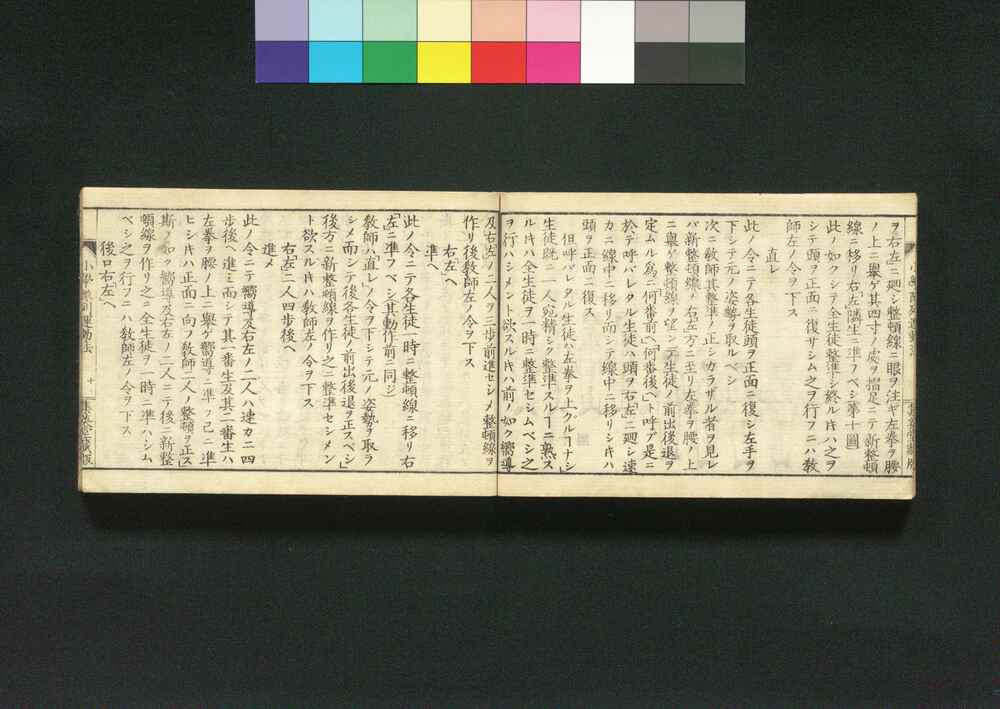 ヲ右左ニ廻シ整頓線ニ眼ヲ注ギ左拳ヲ腰
ノ上ニ擧ゲ其四寸ノ處ヲ摺足ニテ新整頓
線ニ移リ右左隣生ニ準フベシ第十圖
此ノ如クシテ全生徒整準シ終ルキハ之ヲ
シテ頭ヲ正面ニ復サシム之ヲ行フニハ教
師左ノ令ヲ下ス
直レ
此ノ令ニテ各生徒頭ヲ正面ニ復シ左手ヲ
下シテ元ノ姿勢ヲ取ルベシ
次ニ教師其整準ノ正シカラザル者ヲ見レ
バ新整頓線ノ右左方ニ至リ左拳ヲ腰ノ上
ニ擧ゲ整頓線ヲ望ンデ生徒ノ前出後退ヲ
定ムル爲ニ何番前ヘ「何番後ヘ」ト呼ブ是ニ
於テ呼バレタル生徒ハ頭ヲ右左ニ廻シ速
カニ線中ニ移リ而シテ線中ニ移リシキハ
頭ヲ正面ニ復ス
但呼バレタル生徒ハ左拳ヲ上クルヿナシ
生徒既ニ一人宛精シク整準スルヿニ熟ス
ルキハ全生徒ヲ一時ニ整準セシムベシ之
ヲ行ハシメント欲スルキハ前ノ如ク嚮導
及右左ノ二人ヲ三歩前進セシメ整頓線ヲ
作リ後教師左ノ令ヲ下ス
右左ヘ
準ヘ
此ノ令ニテ各生徒一時ニ整頓線ニ移リ右
左ニ準フベシ其動作前ニ同ジ
教師ハ直レノ令ヲ下シテ元ノ姿勢ヲ取ラ
シメ而シテ後各生徒ノ前出後退ヲ正スベシ
後方ニ新整頓線ヲ作リ之ニ整準セシメン
ト欲スルキハ教師左ノ令ヲ下ス
右左二人四歩後ヘ
進メ
此ノ令ニテ嚮導及右左ノ二人ハ速カニ四
歩後ヘ進ミ而シテ其一番生及其二番生ハ
左拳ヲ腰ノ上ニ擧ゲ嚮導ニ準フ已ニ準
ヒシキハ正面ニ向フ教師二人ノ整頓ヲ正ス
斯ノ如ク嚮導及右左ノ二人ニテ後ニ新整
頓線ヲ作リ之ヲ全生徒ヲ一時ニ準ハシム
ベシ之ヲ行フニハ教師左ノ令ヲ下ス
後口右左ヘ
小學隊列運動法
十